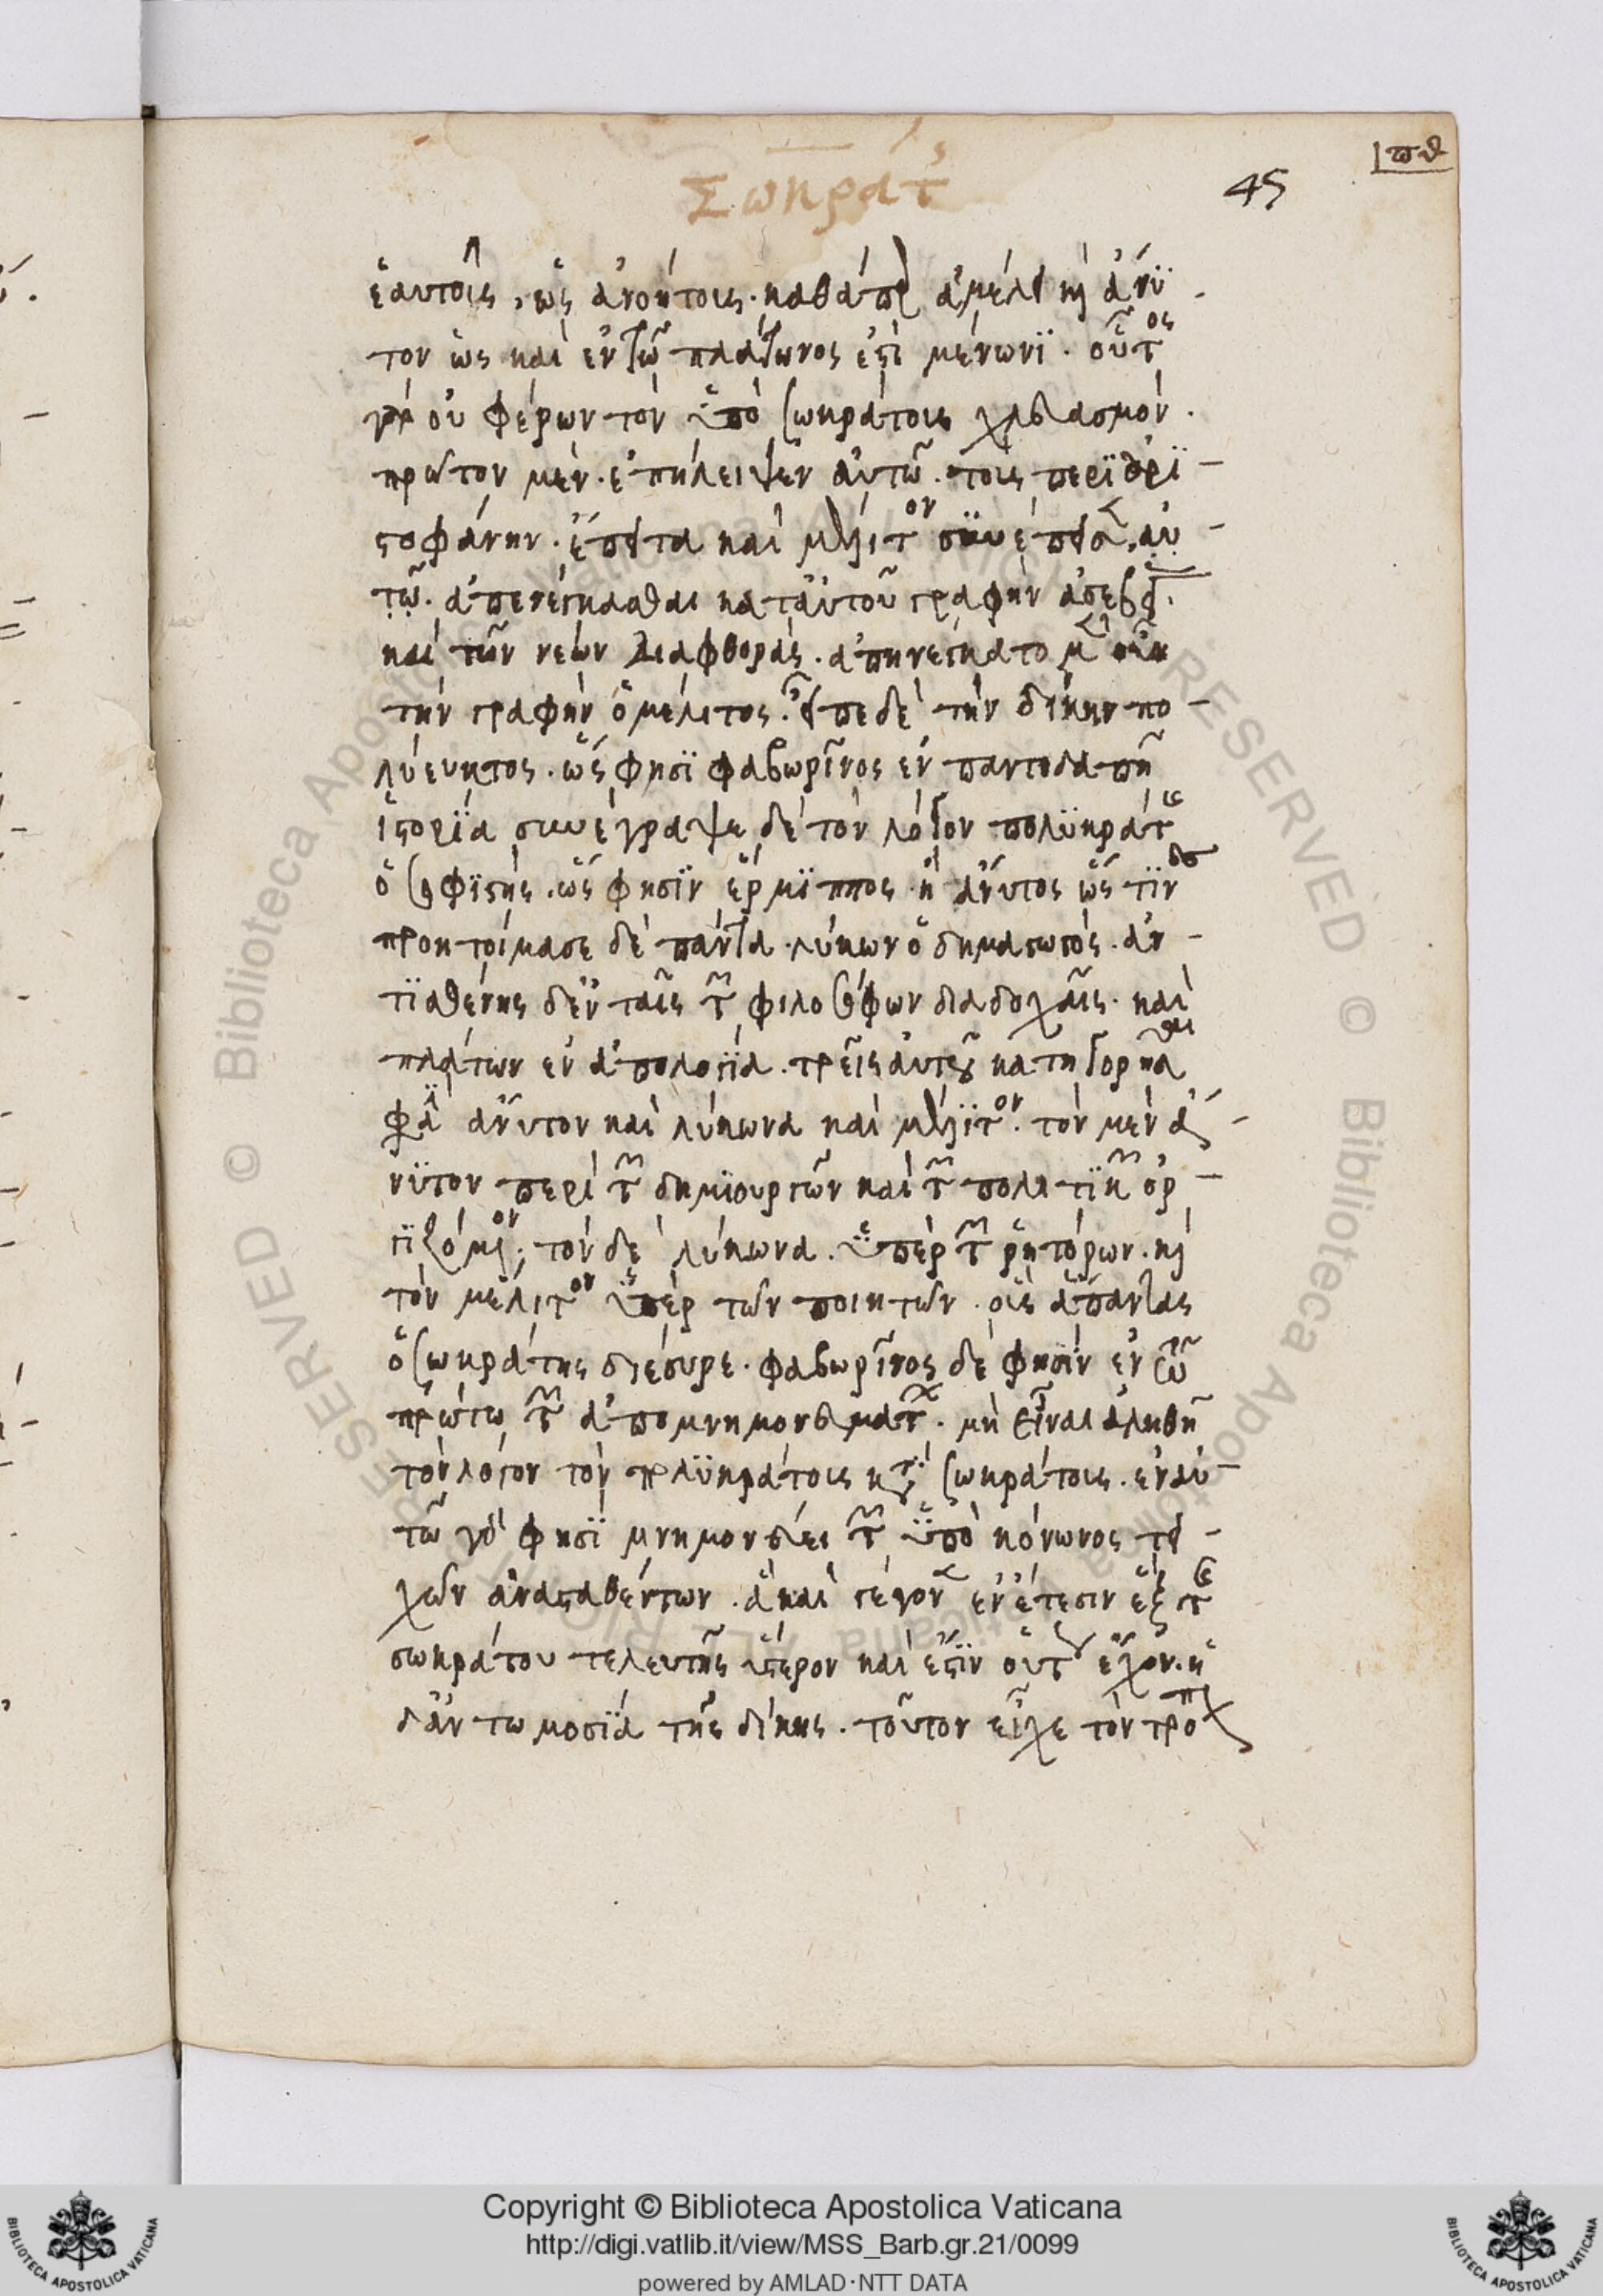 Σωκράτ
45
πθ
ἑαυτοῖς, ὡς ἀνοήτοις. καθάπερ ἀμέλει καὶ ἄνϋ-
τον ὡς καὶ ἐν τῶ πλάτωνος ἐστὶ μένωνϊ. οὗτος
γὰρ οὐ φέρων τὸν ὑπὸ σωκράτους χλευασμόν.
πρῶτον μὲν. ἐπήλειψεν αὐτῶ. τοὺς περὶ ἀρϊ-
στοφάνην. ἔπειτα καὶ μέλιτον συνέπεισεν αὐ-
τῶ. ἀπενέγκασθαι κατ αὐτοῦ γραφὴν ἀσεβείας.
καὶ τῶν νέων διαφθορᾶς. ἀπηνέγκατο μὲν οὖν
τὴν γραφὴν ὁ μέλιτος. εἶπε δὲ τὴν δίκην πο-
λύευκτος. ὥς φησϊ φαβωρῖνος ἐν παντοδαπῆ
ἱστορϊα συνέγραψε δὲ τὸν λόγον πολϋκράτης
ὁ σοφϊστής. ὥς φησϊν ἕρμϊππος. ἢ ἄνυτος ὥς τϊνες
προητοίμασε δὲ πάντα. λύκων ὁ δημαγωγός. ἀν-
τϊσθένης δ ἐν ταῖς τῶν φιλοσόφων διαδοχαῖς. καὶ
πλάτων ἐν ἀπολογϊα. τρεῖς αὐτοῦ κατηγορῆσαι
φασϊ ἄνυτον καὶ λύκωνα καὶ μέλϊτον. τὸν μὲν ἄ-
νϋτον περὶ τῶν δημϊουργῶν καὶ τῶν πολιτϊκῶν ὀρ-
γϊζόμενον. τὸν δὲ λύκωνα. ὑπὲρ τῶν ῥητόρων. καὶ
τὸν μέλιτον ὑπὲρ τῶν ποιητῶν. οὓς ἅπαντας
ὁ σωκράτης διέσυρε. φαβωρῖνος δέ φησϊν ἐν τῶ
πρώτω τῶν ἀπομνημονευμάτων. μὴ εἶναι ἀληθῆ
τὸν λόγον τὸν πολϋκράτους κατὰ σωκράτους. ἐν αὐ-
τῶ γάρ φησϊ μνημονεύει τῶν ὑπὸ κόνωνος τει-
χῶν ἀνασταθέντων. ἃ καὶ γέγονεν ἐν ἔτεσιν ἓξ τῆς
σωκράτου τελευτῆς ὕστερον καὶ ἔστϊν οὕτως ἔχον. ἡ
δ ἀντωμοσϊα τῆς δίκης. τοῦτον εἶχε τὸν τρόπον
Copyright © Biblioteca Apostolica Vaticana
http://digi.vatlib.it/view/MSS_Barb.gr.21/0099
powered by AMLAD·NTT DATA